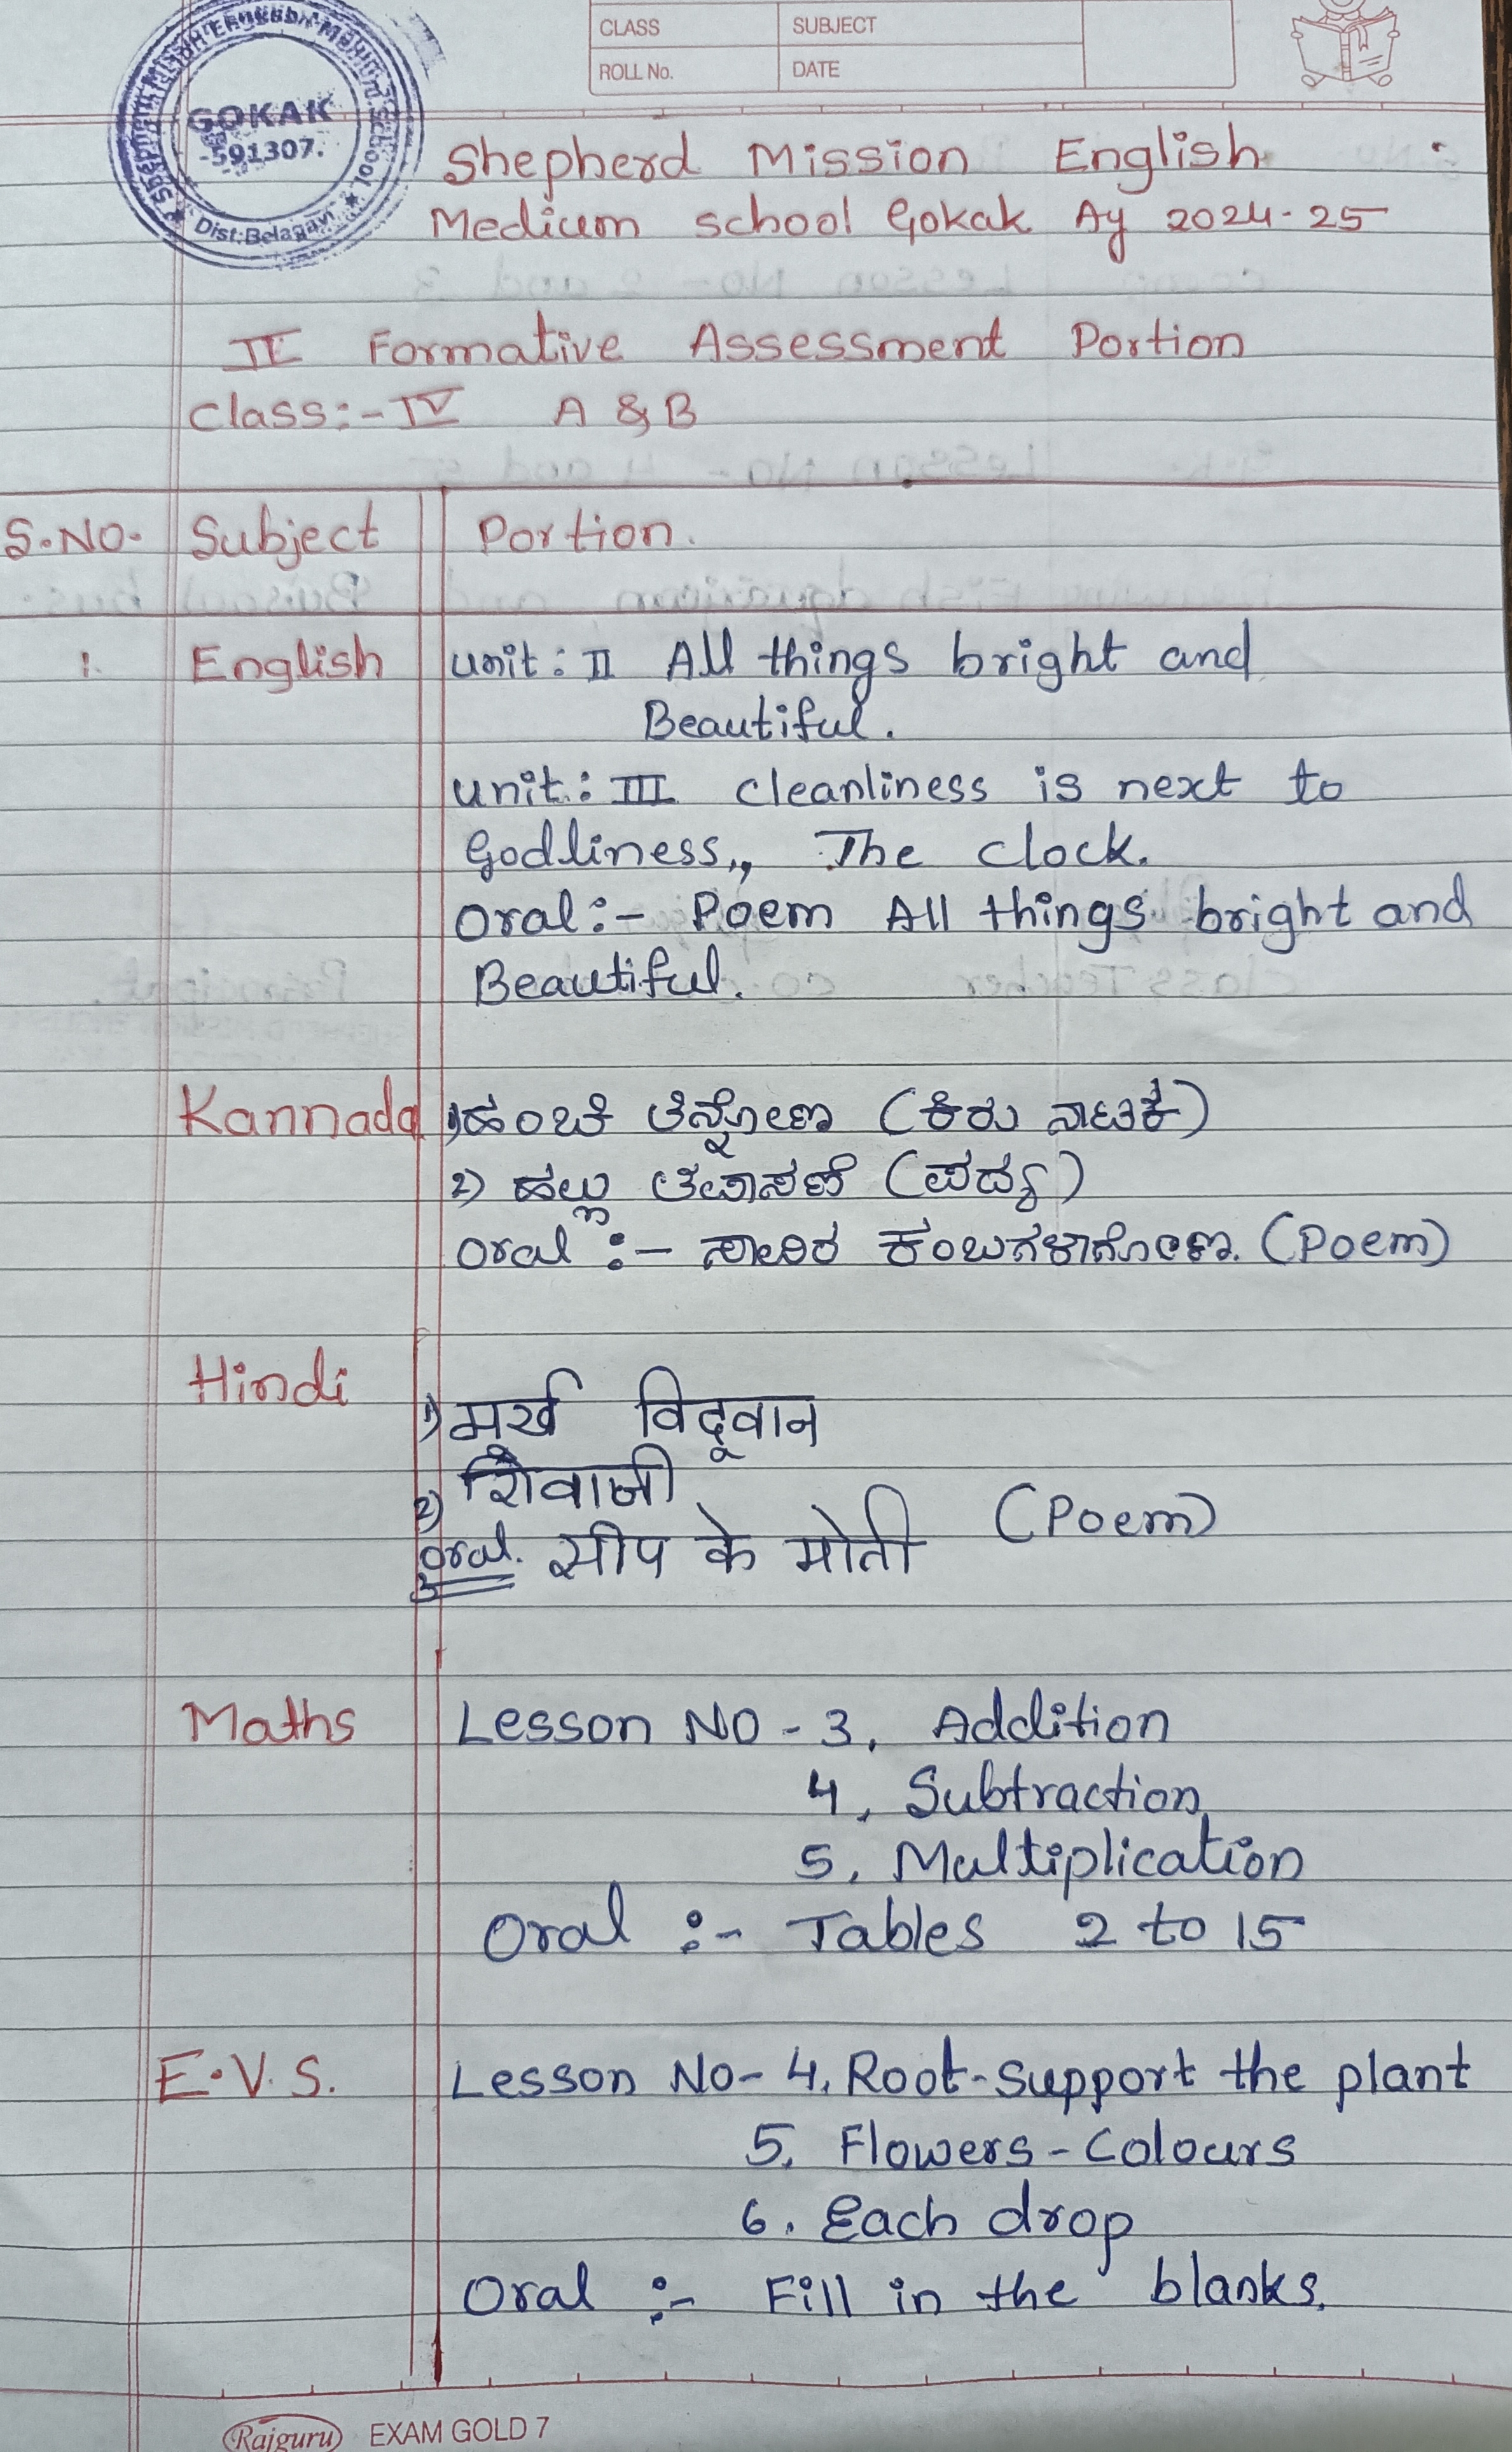 CLASS SUBJECT
ROLL No. DATE
GOKAK
-591307.
Dist:Belagavi
Shepherd Mission English
Medium school Gokak Ay 2024-25
II Formative Assessment Portion
Class:- IV A & B
S.NO. Subject Portion.
1. English unit: II All things bright and
Beautiful.
unit: III cleanliness is next to
Godliness,, The clock.
Oral:- Poem All things bright and
Beautiful.
Kannada 1) ಹಂಚಿ ತಿನ್ನೋಣ (ಕಿರು ನಾಟಕ)
2) ಹಲ್ಲು ತಪಾಸಣೆ (ಪದ್ಯ)
Oral :- ಸಾವಿರ ಕಂಬಗಳಾಗೋಣ. (Poem)
Hindi
1) मूर्ख विद्वान
2) शिवाजी
Oral. सीप के मोती (Poem)
Maths Lesson NO - 3, Addition
4, Subtraction
5, Multiplication
Oral :- Tables 2 to 15
E.V.S. Lesson No- 4, Root-Support the plant
5, Flowers - Colours
6. Each drop
Oral :- Fill in the blanks.
Rajguru EXAM GOLD 7